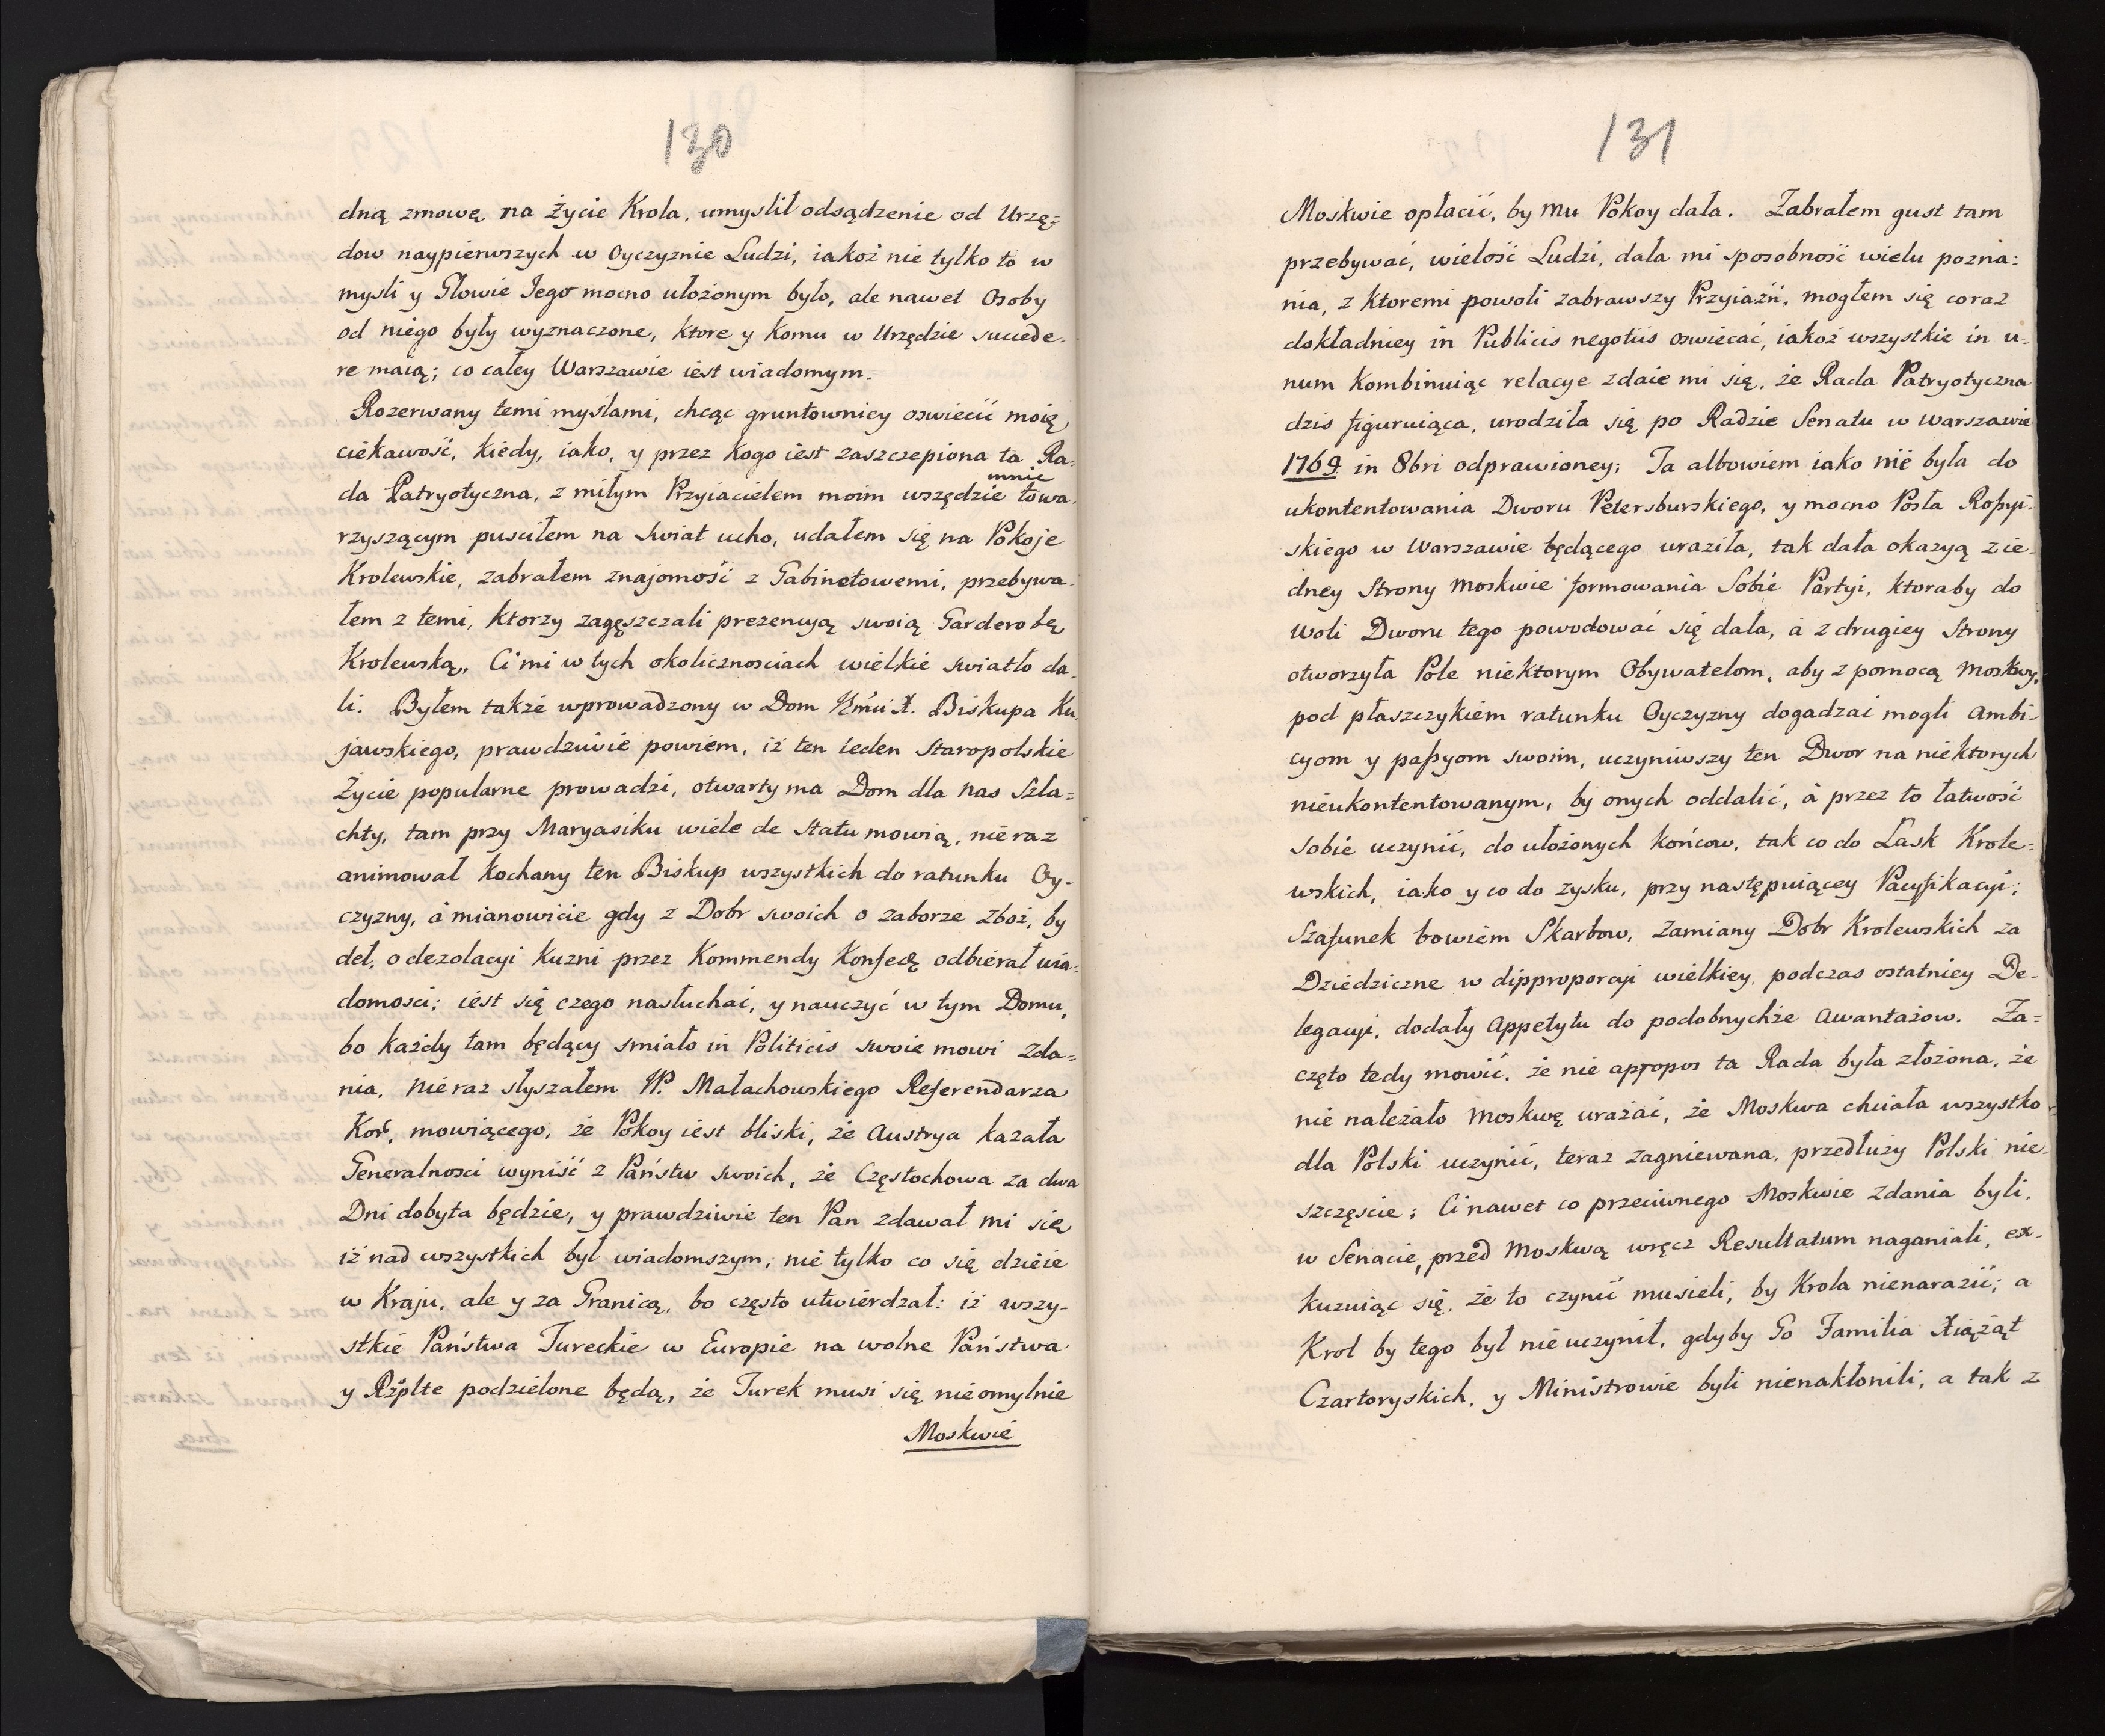 130
dną zmowę na życie Krola, umyslił odsądzenie od Urzę=
dow naypierwszych w Oyczyznie Ludzi, iakoż nie tylko to w
mysli y Głowie Jego mocno ułożonym było, ale nawet Osoby
od niego były wyznaczone, ktore y komu w Urzędzie succede-
re maią; co całey Warszawie iest wiadomym.
Rozerwany temi myślami, chcąc gruntownicy oswiecić moię
ciekawość, kiedy, iako, y przez kogo iest zaszczepiona ta Ra-
mnie
da Patryotyczna, z miłym Przyiacielem moim wszędzie towa-
rzyszącym pusciłem na swiat ucho, udałem się na Pokoje
Krolewskie, zabrałem znajomość z Gabinetowemi, przebywa-
łem z temi, ktorzy zagęszczali prezencyą swoią Garderobę
Krolewską,, Ci mi w tych okolicznosciach wielkie swiatło da-
li. Byłem także wprowadzony w Dom X. Biskupa Ku-
jawskiego, prawdziwie powiem, iż ten ieden Staropolskie
życie popularne prowadzi, otwarty ma Dom dla nas Szla=
chty, tam przy Maryasiku wiele de Statu mowią, nie raz
animował kochany ten Biskup wszystkich do ratunku Oy-
czyzny, á mianowicie gdy z Dobr swoich o zaborze zboż, by
deł, o dezolacyi kuzni przez Kommendy Konfed: odbierał wia-
domosci; iest się czego nasłuchać, y nauczyć w tym Domu,
bo każdy tam będący smiało in Politicis swoie mowi zda=
nia. Nie raz słyszałem JP. Małachowskiego Referendarza
Kor, mowiącego, że Pokoy iest bliski, że Austrya kazała
Generalnosci wyniść z Państw swoich, że Częstochowa za dwa
Dni dobyta będzie, y prawdziwie ten Pan zdawał mi się
iż nad wszystkich był wiadomszym, nie tylko co się dzieie
w Kraju, ale y za Granicą, bo często utwierdzał: iż wszy-
stkie Państwa Tureckie w Europie na wolne Państwa
y Rzplte podzielone będą, że Turek musi się nieomylnie
Moskwie
131
Moskwie opłacić, by mu Pokoy dała. Zabrałem gust tam
przebywać, wielość Ludzi, dała mi sposobność wielu pozna=
nia, z ktoremi powoli zabrawszy Przyiaźń, mogłem się coraz
dokładniey in Publicis negotiis oswiecać, iakoż wszystkie in u-
num kombinuiąc relacye zdaie mi się, że Rada Patryotyczna
dzis figuruiąca, urodziła się po Radzie Senatu w Warszawie
1769. in 8bri odprawioney; Ta albowiem iako nie była do
ukontentowania Dworu Petersburskiego, y mocno Posła Roßyi-
skiego w Warszawie będącego uraziła, tak dała okazyą z ie-
dney Strony Moskwie formowania Sobie Partyi, ktoraby do
woli Dworu tego powodować się dała, á z drugiey Strony
otworzyła Pole niektorym Obywatelom, aby z pomocą Moskwy,
pod płaszczykiem ratunku Oyczyzny dogadzać mogli Ambi-
cyom y paßyom swoim, uczyniwszy ten Dwor na niektorych
nieukontentowanym, by onych oddalić, á przez to łatwość
Sobie uczynić, do ułożonych końcow, tak co do Łask Krole=
wskich, iako y co do zysku, przy następuiącey Pacyfikacyi;
Szafunek bowiem Skarbow, zamiany Dobr Krolewskich za
Dziedziczne w dipproporcyi wielkiey, podczas ostatniey De-
legacyi, dodały Appetytu do podobnychże Awantażow. Za=
częto tedy mowić, że nie apropos ta Rada była złożona, że
nie należało Moskwę urażać, że Moskwa chciała wszystko
dla Polski uczynić, teraz zagniewana, przedłuży Polski nie-
szczęscie; Ci nawet co przeciwnego Moskwie zdania byli,
w Senacie, przed Moskwą wręcz Resultatum naganiali, ex-
kuzuiąc się, że to czynić musieli, by Krola nienarazić; a
Krol by tego był nie uczynił, gdyby Go Familia Xiążąt
Czartoryskich, y Ministrowie byli nienakłonili, a tak z